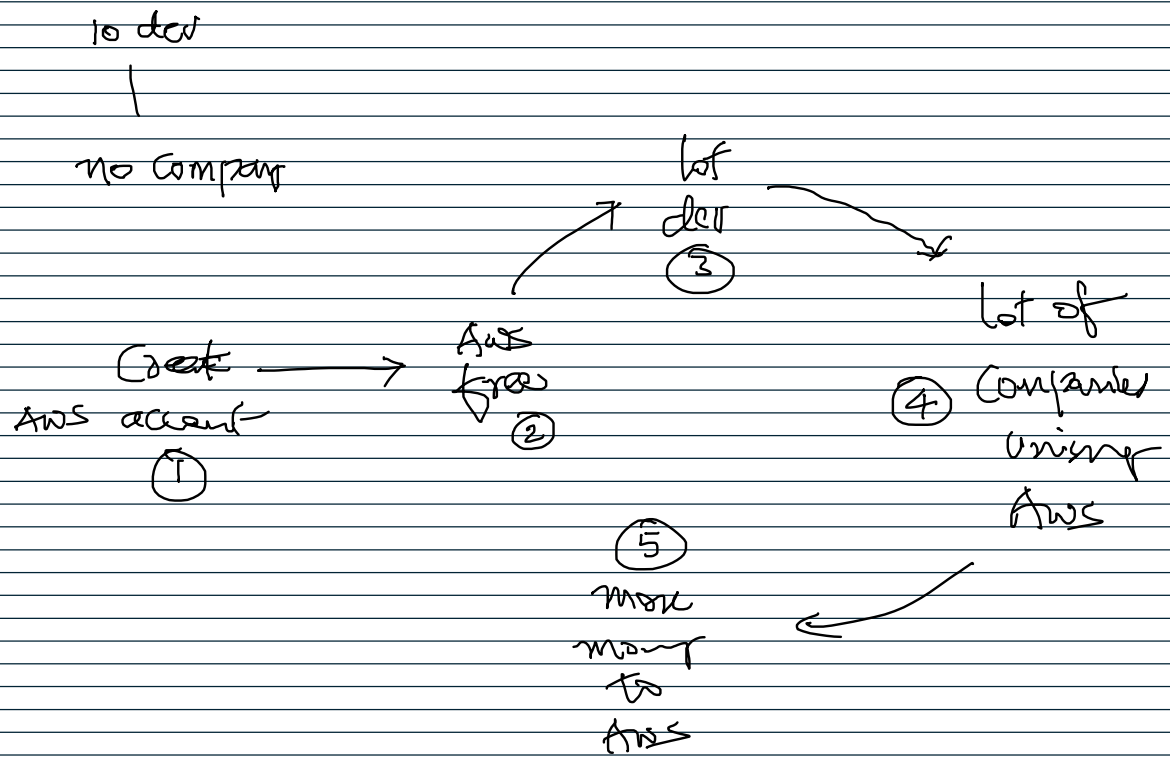 10 dev
no company
Create
AWS account
1
AWS
free
2
lot
dev
3
Lot of
Companies
using
AWS
4
5
more
money
to
AWS